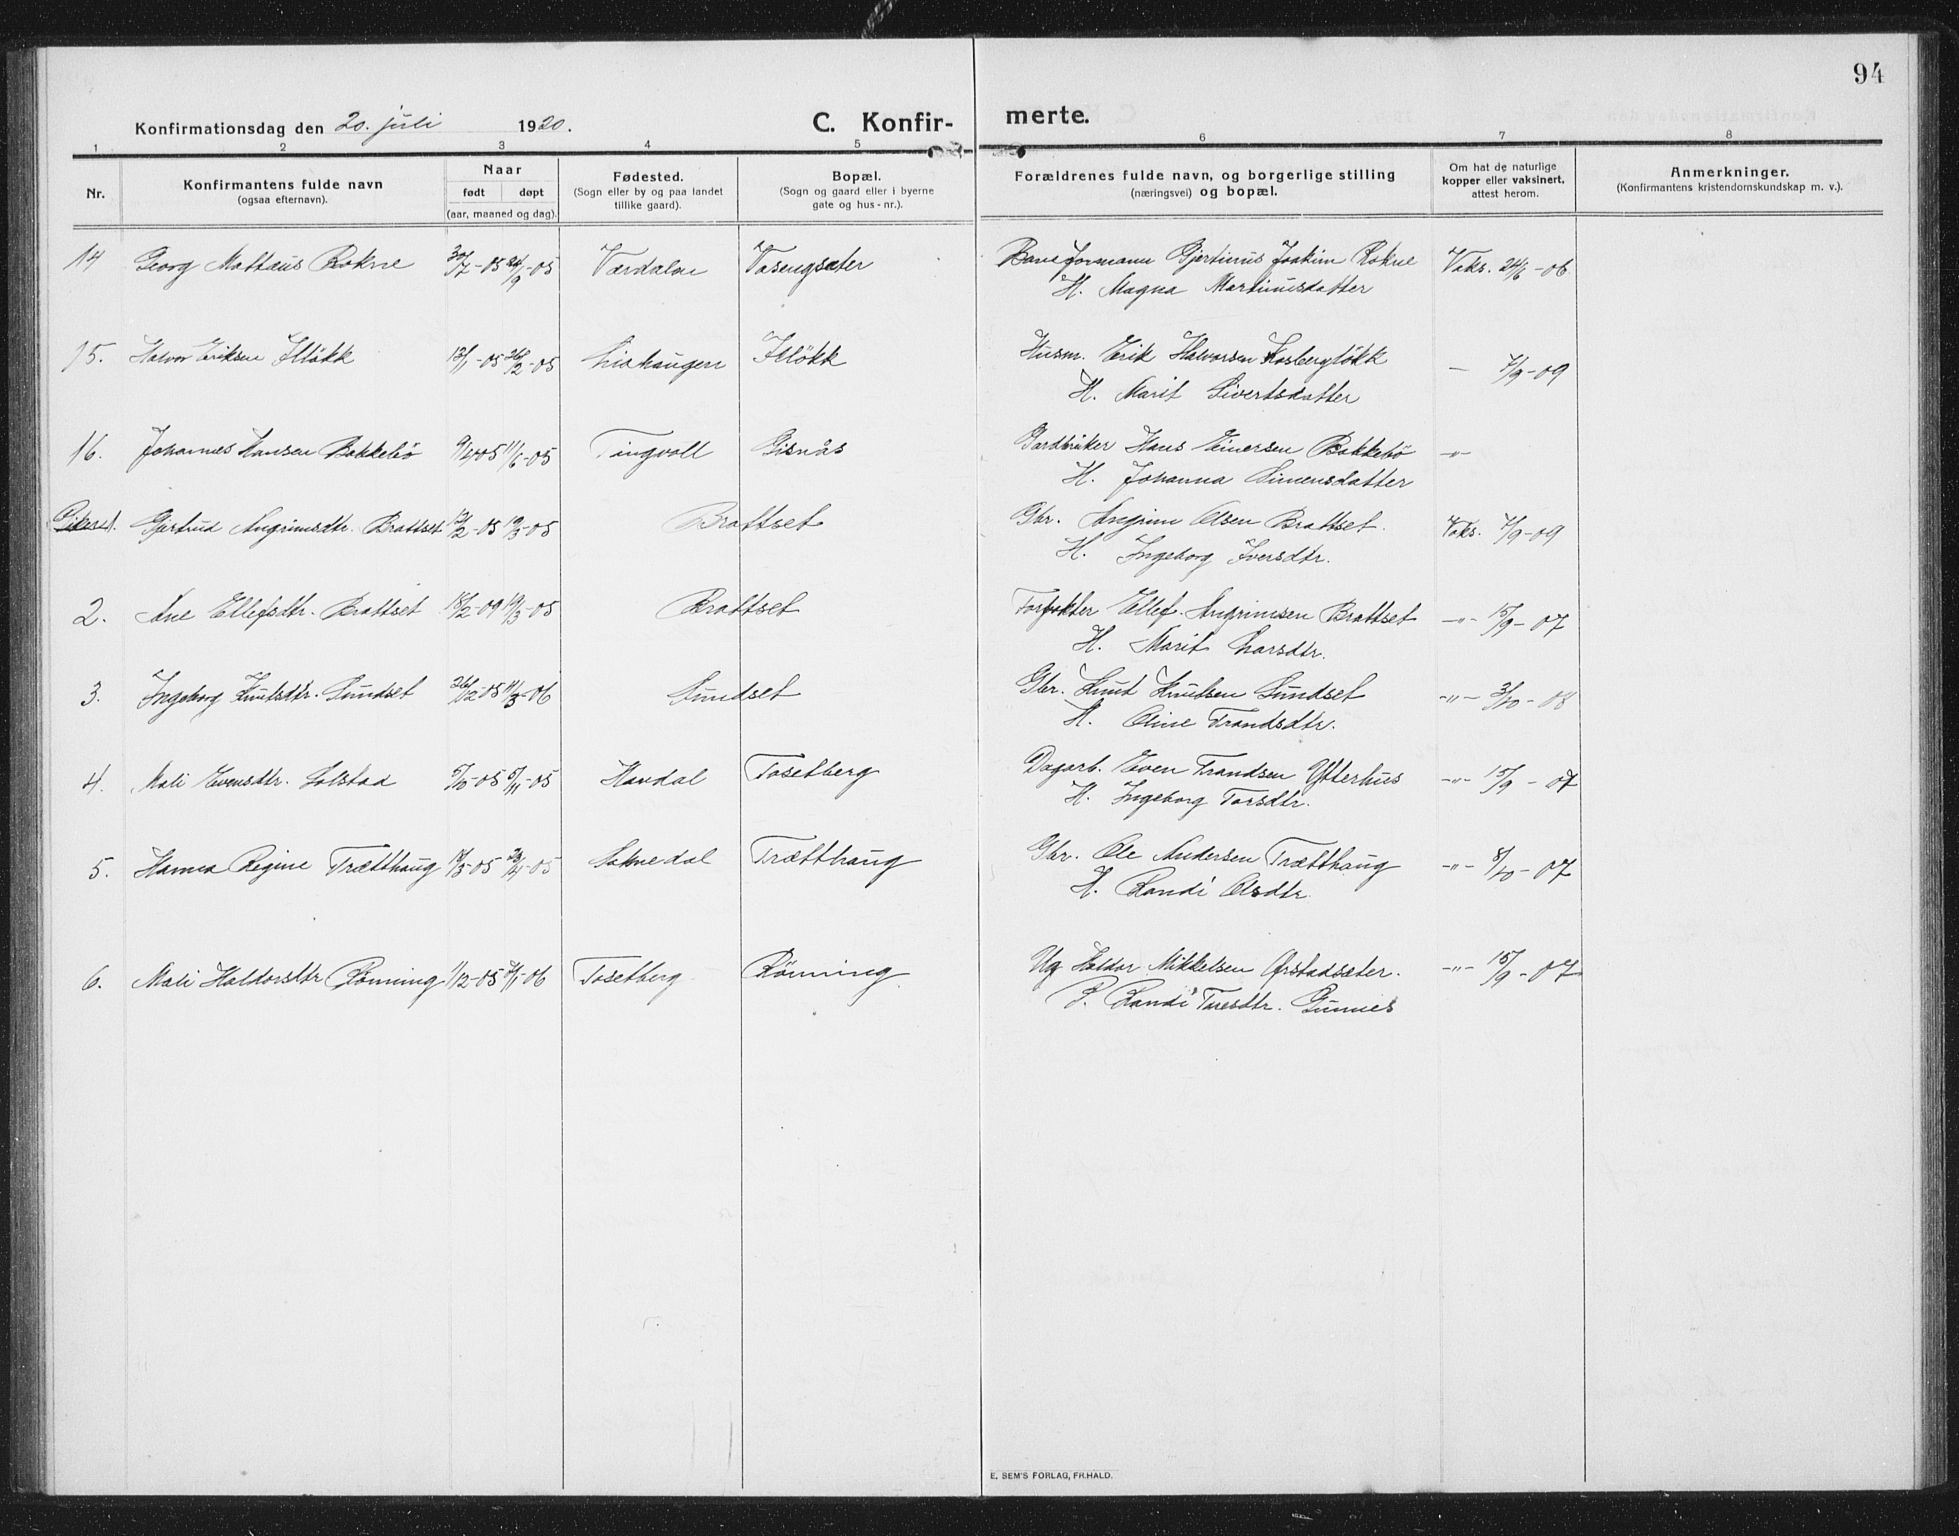 94
Konfirmationsdag den 20. juli 1920.
C. Konfir-
merte.
1 2 3 4 5 6 7 8
Nr.
Konfirmantens fulde navn
(ogsaa efternavn).
Naar
født døpt
(aar, maaned og dag).
Fødested.
(Sogn eller by og paa landet
tillike gaard).
Bopæl.
(Sogn og gaard eller i byerne
gate og hus-nr.).
Forældrenes fulde navn, og borgerlige stilling
(næringsvei) og bopæl.
Om hat de naturlige
kopper eller vaksinert,
attest herom.
Anmerkninger.
(Konfirmantens kristendomskundskap m. v.).
14 Georg Mattæus Rokne 30/7-05 24/9-05 Værdalen Vasengsæter Baneformann Gjertinus Joakim Rokne Vaks. 24/6-06
H. Magna Martinusdatter
15. Halvor Eriksen Illøkk 13/1-05 26/2-05 Liahaugen Illøkk Husm. Erik Halvorsen Kosbergløkk - 7/9-09
H. Marit Sivertsdatter
16. Johannes Hansen Bakkebø 9/4-05 11/6-05 Tingvoll Gisnås Gardbruker Hans Einersen Bakkebø -"-
H. Johanna Simensdatter
Piker 1. Gjertrud Angrimsdtr. Brattset 13/2-05 19/3-05 Brattset Gbr. Angrim Olsen Brattset. Vaks. 7/9-09
H. Ingeborg Iversdtr.
2. Ane Ellefsdtr. Brattset 18/2-09 19/3-05 Brattset Forpakter Ellef Angrimsen Brattset -"- 15/9-07
H. Marit Larsdtr.
3. Ingeborg Knutsdtr. Sundset 26/12-05 11/3-06 Sundset Gbr. Knut Knutsen Sundset -"- 3/10-08
H. Oline Trondsdtr.
4. Mali Evensdtr. Solstad 5/10-05 5/11-05 Havdal Tosetberg Dagarb. Even Trondsen Ytterhus -"- 15/9-07
H. Ingeborg Torsdtr.
5. Hanna Regine Trætthaug 18/3-05 23/4-05 Soknedal Trætthaug Gbr. Ole Andersen Trætthaug -"- 8/10-07
H. Randi Olsdtr.
6. Mali Haldorsdtr Rønning 1/12-05 7/1-06 Tosetberg Rønning Ug Haldor Mikkelsen Ørstadsæter. -"- 15/9-07
P. Randi Toresdtr. Gunnes
E. SEM'S FORLAG, FR.HALD.